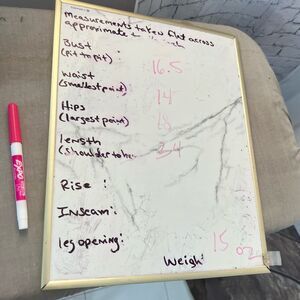 measurements taken flat across
approximate
Bust :
(pit to pit) 16.5
waist
(smallest point) 14
Hips
(largest point) 18
length
(shoulder to he 34
Rise :
Inseam :
leg opening :
15 oz
Weigh
EXPO